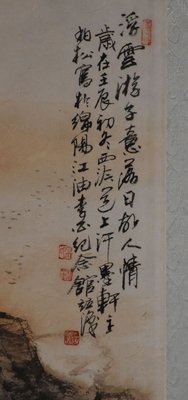 浮雲游子意落日故人情
歲在壬辰初冬西派道上汗墨軒主
柏松寫於綿陽江油李白紀念館